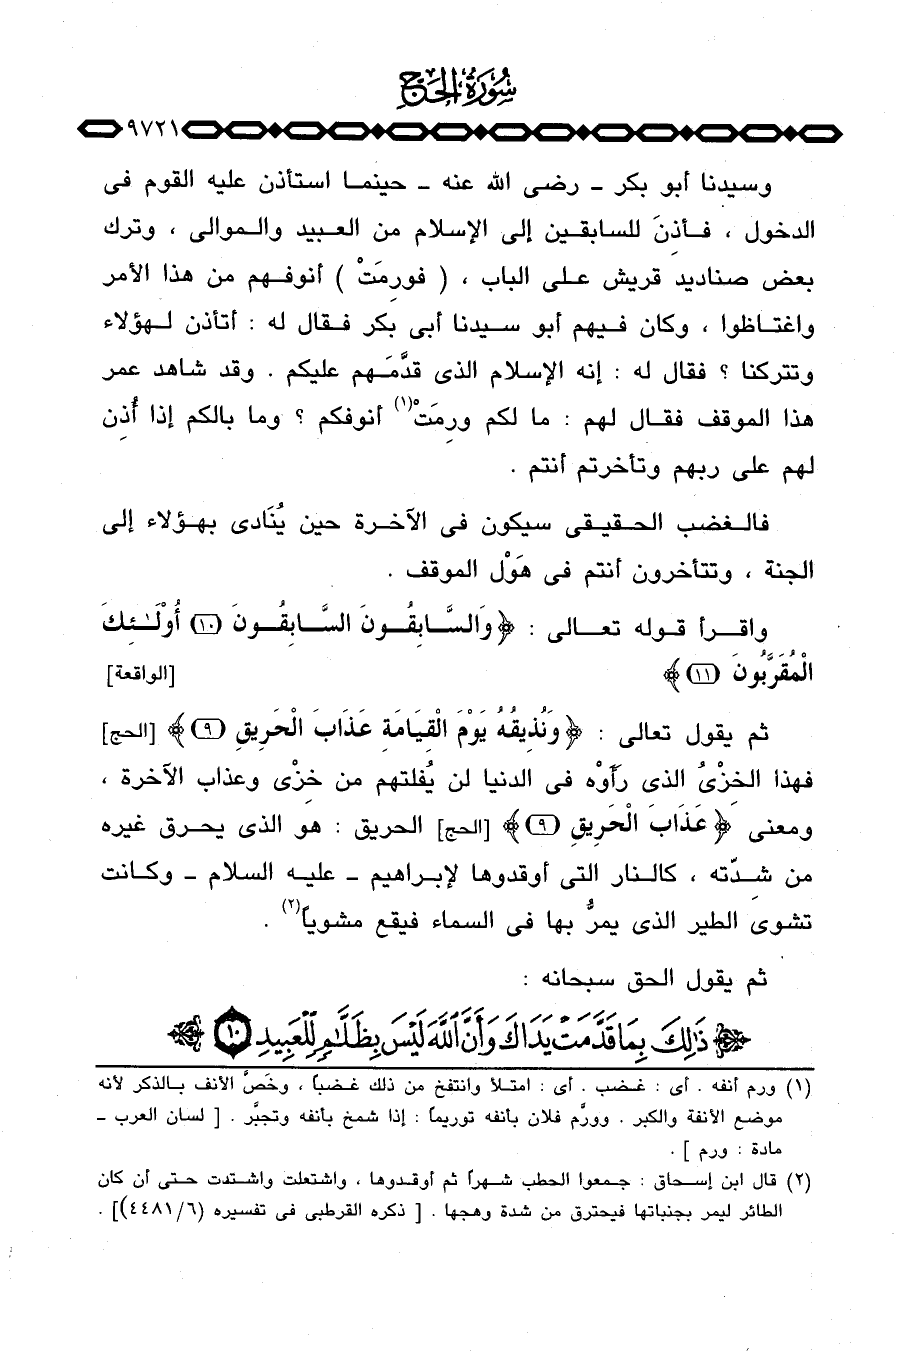 سُورَةُ الحَجِّ
٩٧٢١
وسيدنا أبو بكر ـ رضى الله عنه ـ حينمـا استأذن عليه القوم فى
الدخول ، فـأذِنَ للسابقـين إلى الإسلام من العـبيد والـموالى ، وترك
بعض صناديد قريش عـلـى الباب ، ( فورِمَتْ ) أنوفـهم من هذا الأمر
واغتـاظوا ، وكان فـيهم أبو سـيدنا أبى بكر فـقال له : أتأذن لـهؤلاء
وتتركنا ؟ فقال له : إنه الإسلام الذى قدَّمَـهم عليكم . وقد شاهد عمر
هذا الموقف فقـال لهم : ما لكم ورِمَتْ(١) أنوفكم ؟ وما بالكم إذا أُذِن
لهم على ربهم وتأخرتم أنتم .
فالـغضب الحـقيقـى سيكون فى الآخـرة حين يُنَادى بهـؤلاء إلى
الجنة ، وتتأخرون أنتم فى هَوْل الموقف .
واقـرأ قـوله تعـالى : ﴿ وَالسَّـابِقُـونَ السَّـابِقُـونَ (١٠) أُولَـٰئِكَ
الْمُقَرَّبُونَ (١١) ﴾ [الواقعة]
ثم يقول تعالى : ﴿ وَنُذِيقُهُ يَوْمَ الْقِيَامَةِ عَذَابَ الْحَرِيقِ (٩) ﴾ [الحج]
فهذا الخزْىُ الذى رأَوْه فى الدنيا لن يُفلتهم من خِزْى وعذاب الآخرة ،
ومعنى ﴿ عَذَابَ الْحَرِيقِ (٩) ﴾ [الحج] الحريق : هو الذى يحـرق غيره
من شـدَّته ، كالـنار التى أوقدوها لإبـراهيم ـ عليـه السلام ـ وكـانت
تشوِى الطير الذى يمرُّ بها فى السماء فيقع مشوياً(٢) .
ثم يقول الحق سبحانه :
ذَٰلِكَ بِمَا قَدَّمَتْ يَدَاكَ وَأَنَّ ٱللَّهَ لَيْسَ بِظَلَّٰمٍ لِّلْعَبِيدِ ١٠
(١) ورم أنفه . أى : غـضب . أى : امتـلأ وانتفخ من ذلك غـضباً ، وخَصَّ الأنف بـالذكر لأنه
موضـع الأنفة والكبر . وورَّم فلان بأنفه توريماً : إذا شمخ بأنفه وتجبَّر . [ لسان العرب ـ
مادة : ورم ] .
(٢) قال ابن إسـحاق : جـمعوا الحطب شـهراً ثم أوقـدوها ، واشتعلت واشـتدت حـتى أن كان
الطائر ليمر بجنباتها فيحترق من شدة وهجها . [ ذكره القرطبى فى تفسيره (٤٤٨١/٦)] .